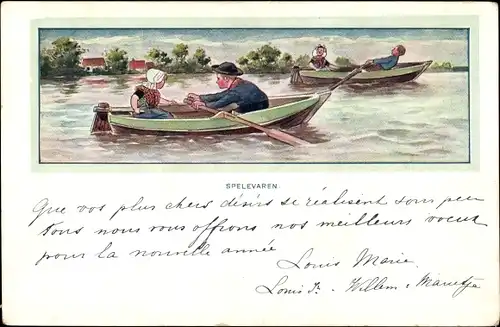 SPELEVAREN
Que vos plus chers désirs se réalisent sous peu
Tous nous vous offrons nos meilleurs voeux
pour la nouvelle année
Louis Marie
Louis Jr. - Willem - Marietje